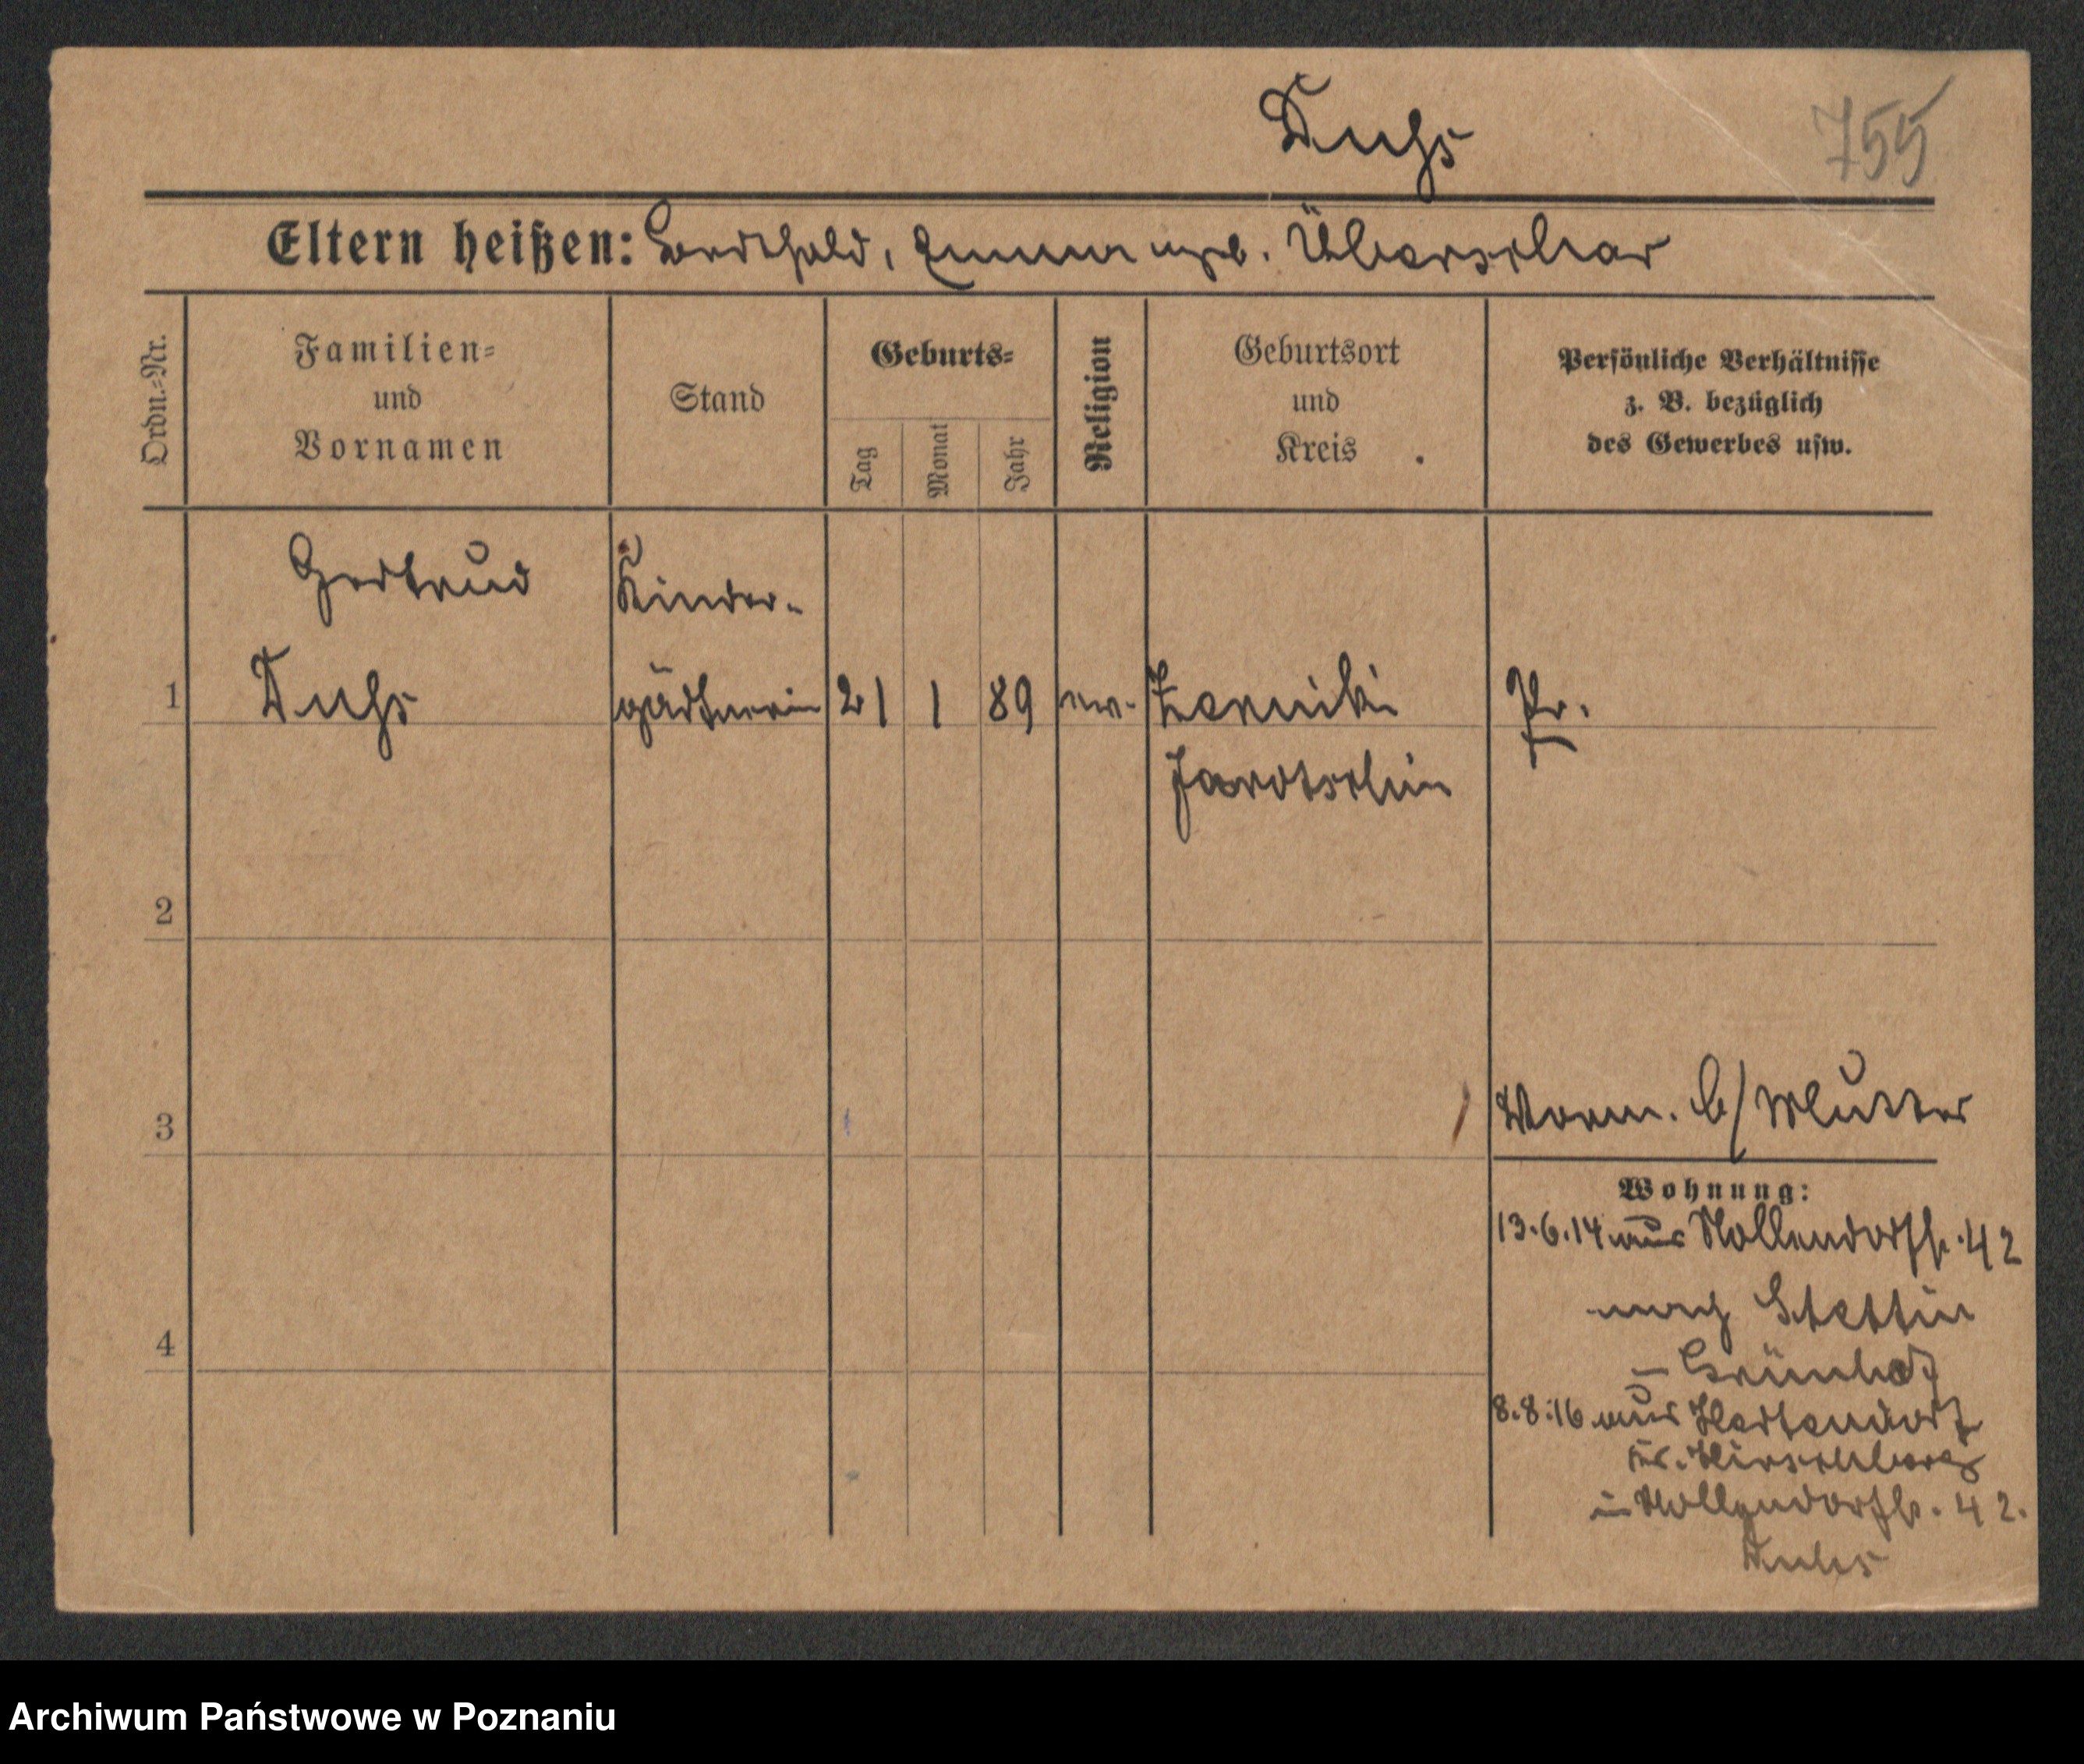 Duhs
755
Eltern heißen: Berthold, Emma geb. Überschar
Ordn.-Nr.
Familien-
und
Vornamen
Stand
Geburts-
Tag
Monat
Jahr
Religion
Geburtsort
und
Kreis
Persönliche Verhältnisse
z. B. bezüglich
des Gewerbes usw.
Gertrud
Kinder-
1 Duhs gärtnerin 21 1 89 ev. Zerniki Pr.
Jarotschin
2
3
Vorm. b/Mutter
Wohnung:
13.6.14 aus Nollendorfstr. 42
nach Stettin
4
- Grünhof
8.8.16 aus
Kr. Hirschberg
in Nollendorfstr. 42.
Duhs
Archiwum Państwowe w Poznaniu